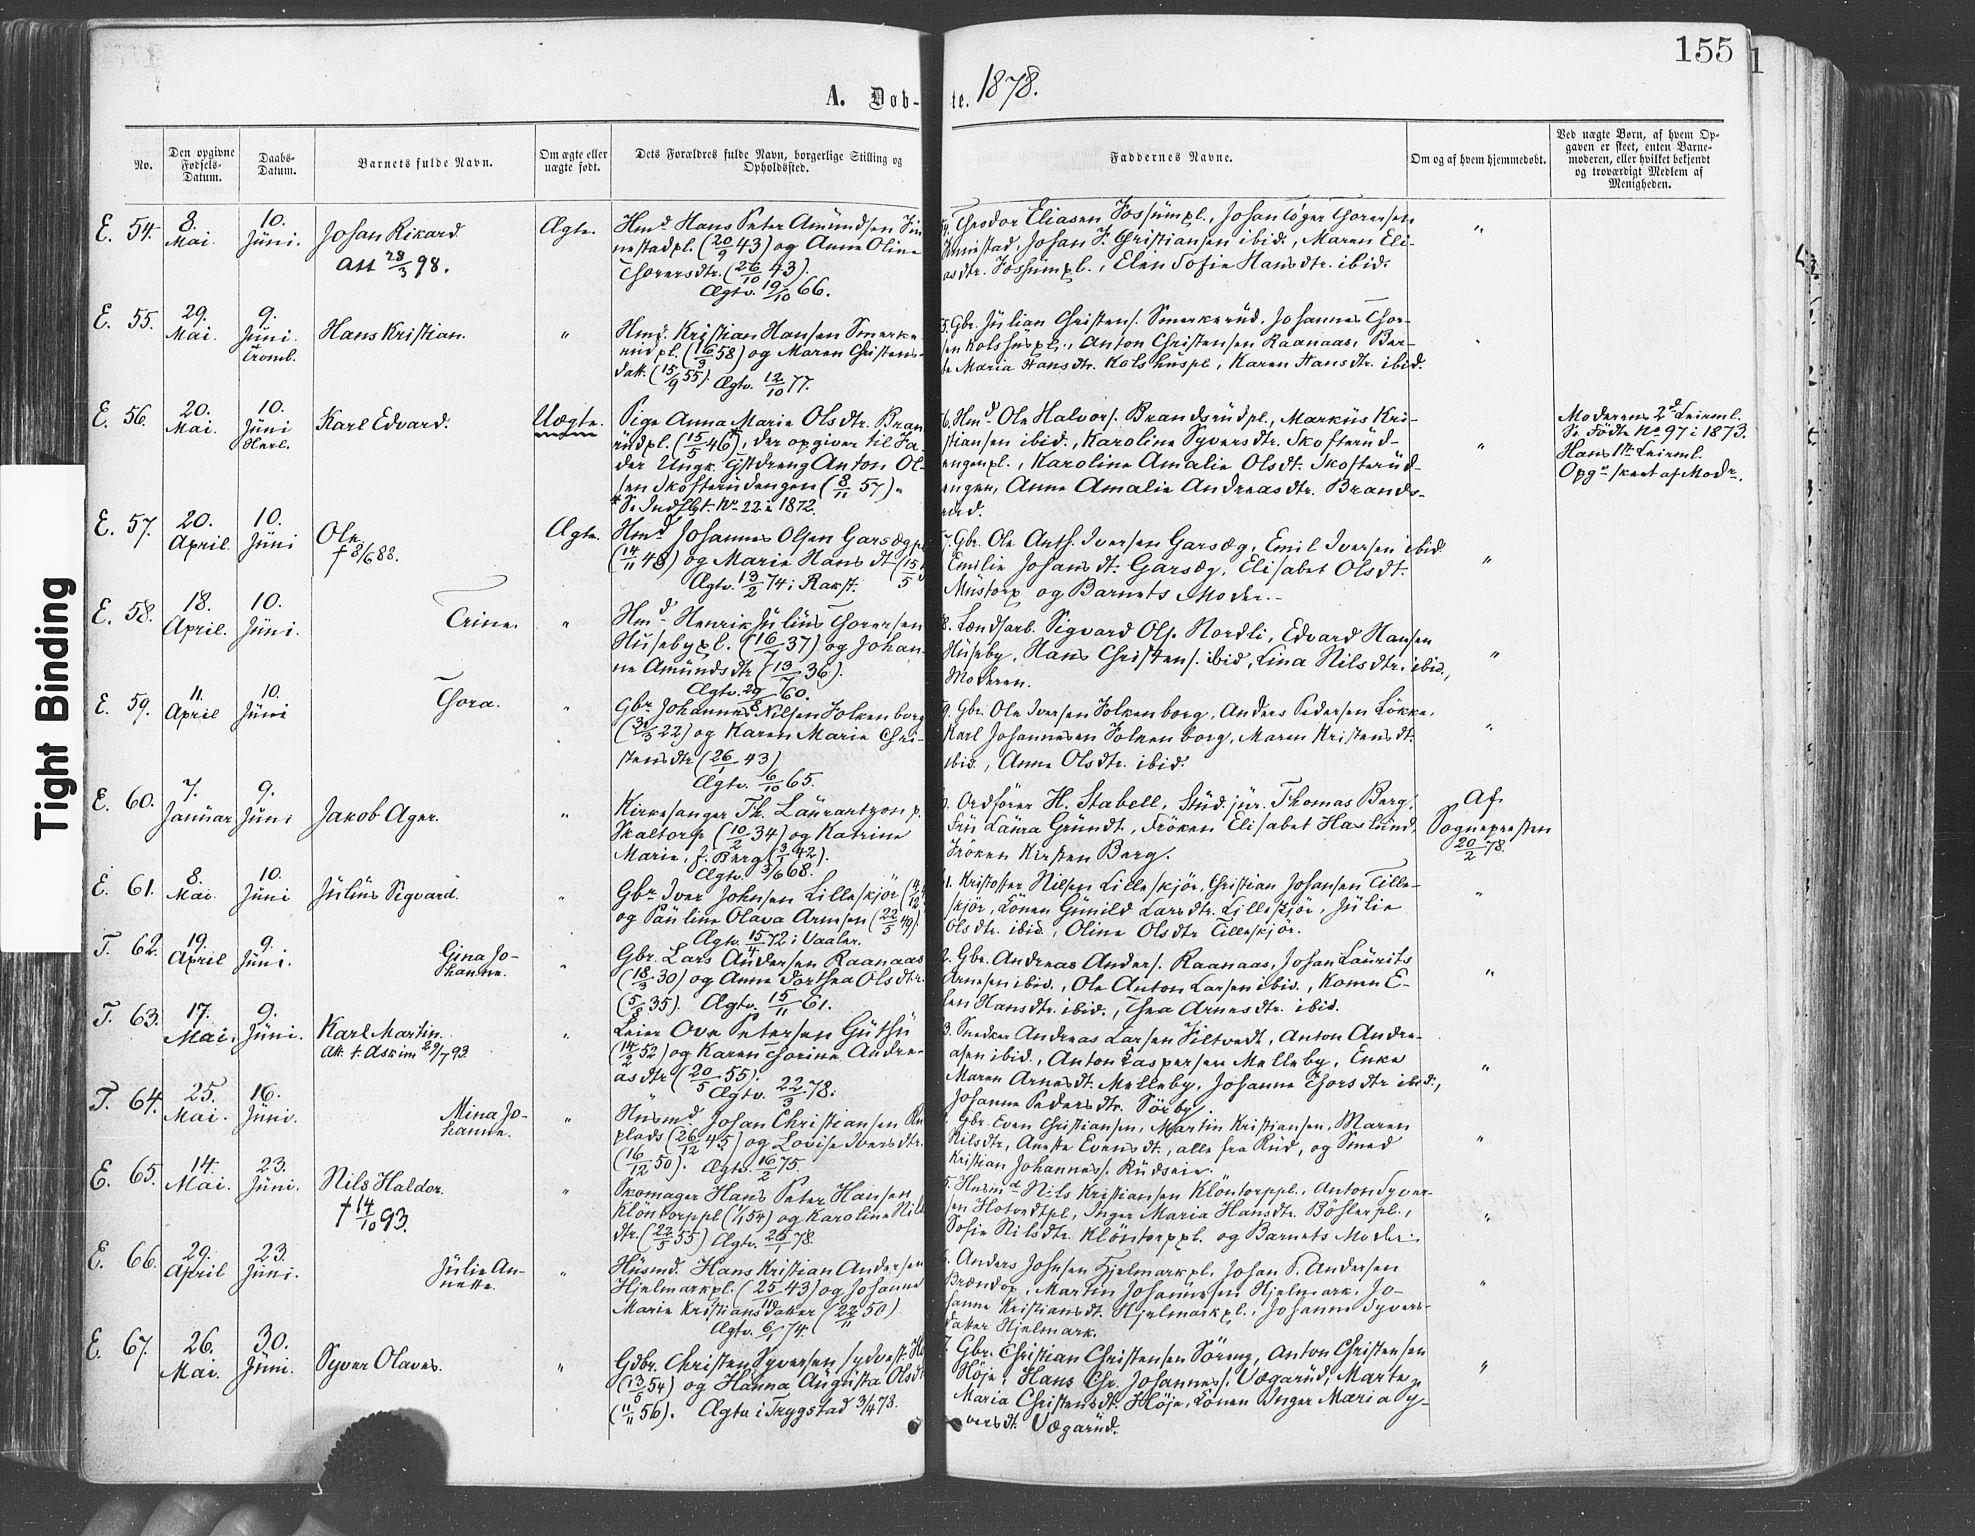 155
1
A. Døb-
te. 1878.
Tight Binding
No.
Den opgivne Fødsels-Datum.
Daabs-Datum.
Barnets fulde Navn.
Om ægte eller uægte født.
Dets Forældres fulde Navn, borgerlige Stilling og Opholdssted.
Faddernes Navne.
Om og af hvem hjemmedøbt.
Ved uægte Børn, af hvem Opgaven er skeet, enten Barnemoderen, eller hvilket bekjendt og troværdigt Medlem af Menigheden.
E. 54. 8. Mai. 10. Juni. Johan Rikard. Ægte.
Att 28/3 98.
Hmd Hans Peter Amundsen
nestadpl. (20/9 43) og Anne Oline
Thorersdtr. (26/10 43).
Ægtv. 19/10 66.
Theodor Eliasen Fossumpl., Johan Thorersen
Johan F. Christiansen ibid., Maren Eli-
asdtr. Fossumpl., Elen Sofie Hansdtr. ibid.
"
E. 55. 29. Mai. 9. Juni. Tromb. Hans Kristian. "
Hmd. Kristian Hansen Smerke
rudpl. (16/3 58) og Maren Christens-
datt. (15/9 55). Ægtv. 12/10 77.
5. Gbr. Julian Christens. Smerkerud, Johannes Thor-
sen Kolshuspl., Anton Christensen Raanaas, Ber-
te Maria Hansdtr. Kolshuspl, Karen Hansdtr. ibid.
E. 56. 20. Mai. 10. Juni Herl. Karl Edvard. Uægte.
Pige Anna Marie Olsdtr. Bran
rudpl. (15/5 46)*, der opgiver til Fa-
der Ungk. Gjstdreng Anton Ol-
sen Skofterudengen (8/11 57).
* Se Indflgt. No 22 i 1872.
6. Hmd Ole Halvors. Brandsrudpl., Markus Kri-
stiansen ibid., Karoline Syversdtr. Skofterud-
engenpl., Karoline Amalie Olsdt. Skofterud-
engen, Anne Amalie Andreasdtr. Brands-
rud.
"
Moderens 2d Leirml.
Se Fødte No 97 i 1873.
Hans 1te Leirml.
Opgr skeet af Modr.
E. 57. 20. April. 10. Juni Ole. Ægte.
† 8/6 88.
Hmd Johannes Olsen Garsegpl
(14/11 48) og Marie Hansdt (15/5
Ægtv. 13/2 74 i Rakst.
7. Gbr. Ole Anth. Iversen Garsæg, Emil Iversen ibid
Emilie Johansdt. Garsæg, Elisabet Olsdt.
Mustorp og Barnets Moder.
"
E. 58. 18. April. 10. Juni. Trine. "
Hmd Henrik Julius Thorersen
Husebypl. (16/7 37) og Johan-
ne Amundsdtr (13/7 36).
Ægtv. 29/8 60.
8. Landsarb. Sigvard Ols. Nordli, Edvard Hansen
Huseby, Hans Christens. ibid, Lina Nilsdtr. ibid.,
Moderen.
"
E. 59. 11. April 10. Juni Thora. "
Gbr Johannes Nilsen Folkenborg
22) og Karen Marie Chri-
stensdtr (26/1 43)
Ægtv. 6/10 65.
9. Gbr. Ole Iversen Folkenborg, Anders Pedersen Løkke,
Karl Johannesen Folkenborg, Maren Kristensdt.
ibid., Anne Olsdtr. ibid.
"
E. 60. 7. Januar 9. Juni Jakob Ager. "
Kirkesanger Th. Laurantzon p.
Skaltorp (10/2 34) og Katrine
Marie, f. Berg (3/1 42).
Ægtv. 3/6 68.
Ordfører H. Stabell, Stud. jur. Thomas Berg,
Fru Laura Grundt, Frøken Elisabet Haslund,
Frøken Kirsten Berg.
Af
Sognepresten
20/2 78
E. 61. 8. Mai. 10. Juni Julius Sigvard. "
Gbr Iver Johnsen Lilleskjør
og Pauline Olava Arnesen (22/5 49).
Ægtv. 15/4 72 i Vaaler.
1. Kristoffer Nilsen Lilleskjør, Christian Johansen Lille-
skjør, Konen Gunild Larsdtr. Lilleskjør, Julie
Olsdtr. ibid., Oline Olsdtr Lilleskjør.
"
T. 62. 19. April 9. Juni. Gina Jo-
hanne. "
Gbr. Lars Andersen Raanaas
(18/3 30) og Anne Dorthea Olsdtr.
(5/8 35). Ægtv. 15/11 61.
2. Gbr. Andreas Anders. Raanaas, Johan Laurits
Arnesen ibid., Ole Anton Larsen ibid., Konen E-
len Hansdtr. ibid., Thea Arnesdtr. ibid.
"
T. 63. 17. Mai. 9. Juni. Karl Martin. "
Att. t. Askim 29/7 93.
Leier Ove Petersen Guthu
(14/2 52) og Karen Thorine Andre-
asdtr (20/5 55).
Ægtv. 22/3 78.
3. Snedker Andreas Larsen Filtvedt, Anton Andre-
asen ibid., Anton Kaspersen Melleby, Enke
Maren Arnesdt. Melleby, Johanne Thorsdtr ibid.,
Johanne Pedersdtr. Sørby.
"
T. 64. 25. Mai. 16. Juni. Mina Jo-
hanne. "
Husmd. Johan Christiansen
plads (26/12 45) og Lovise Iversdtr.
(16/12 50). Ægtv. 16/2 75.
Gbr. Even Christiansen, Martin Kristiansen, Maren
Nilsdtr, Anette Evensdt., alle fra Rud, og Smed
Kristian Johanness. Rudseie.
"
E. 65. 14. Mai. 23. Juni. Nils Haldor. "
† 14/10 93.
Skomager Hans Peter Hansen
Kløntorppl (1/1 54) og Karoline Nils
dtr. (22/5 55) Ægtv. 25/1 78.
5. Husmd Nils Kristiansen Kløntorppl., Anton Syver-
sen Hotvedtpl, Inger Maria Hansdtr. Bøhlerpl.,
Sofie Nilsdtr. Kløntorppl. og Barnets Moder.
"
E. 66. 29. April 23. Juni. Julie An-
nette. "
Husmd. Hans Kristian Andersen
Hjelmarkpl. (25/11 43) og Johanne
Marie Kristiansdatter (22/11 50)
Ægtv. 6/1 74.
6. Anders Johnsen Hjelmarkpl, Johan P. Andersen
Brændop, Martin Johannesen Hjelmark, Jo-
hanne Kristiansdt. Hjelmarkpl., Johanne Syvers-
datter Hjelmark.
"
E. 67. 26. Mai. 30. Juni. Syver Olaves. "
Gdbr. Christen Syversen sydvest. Hø
(13/5 54) og Hanna Augusta Olsdt
(11/11 56). Ægtv i Trygstad 3/4 78.
7. Gbr. Christian Christensen Søreng, Anton Christensen
Høje, Hans Chr. Johanness. Vægarud, Marte
Maria Christensdt. Høje, Konen Inger Maria Sy-
versdt. Vægarud.
"